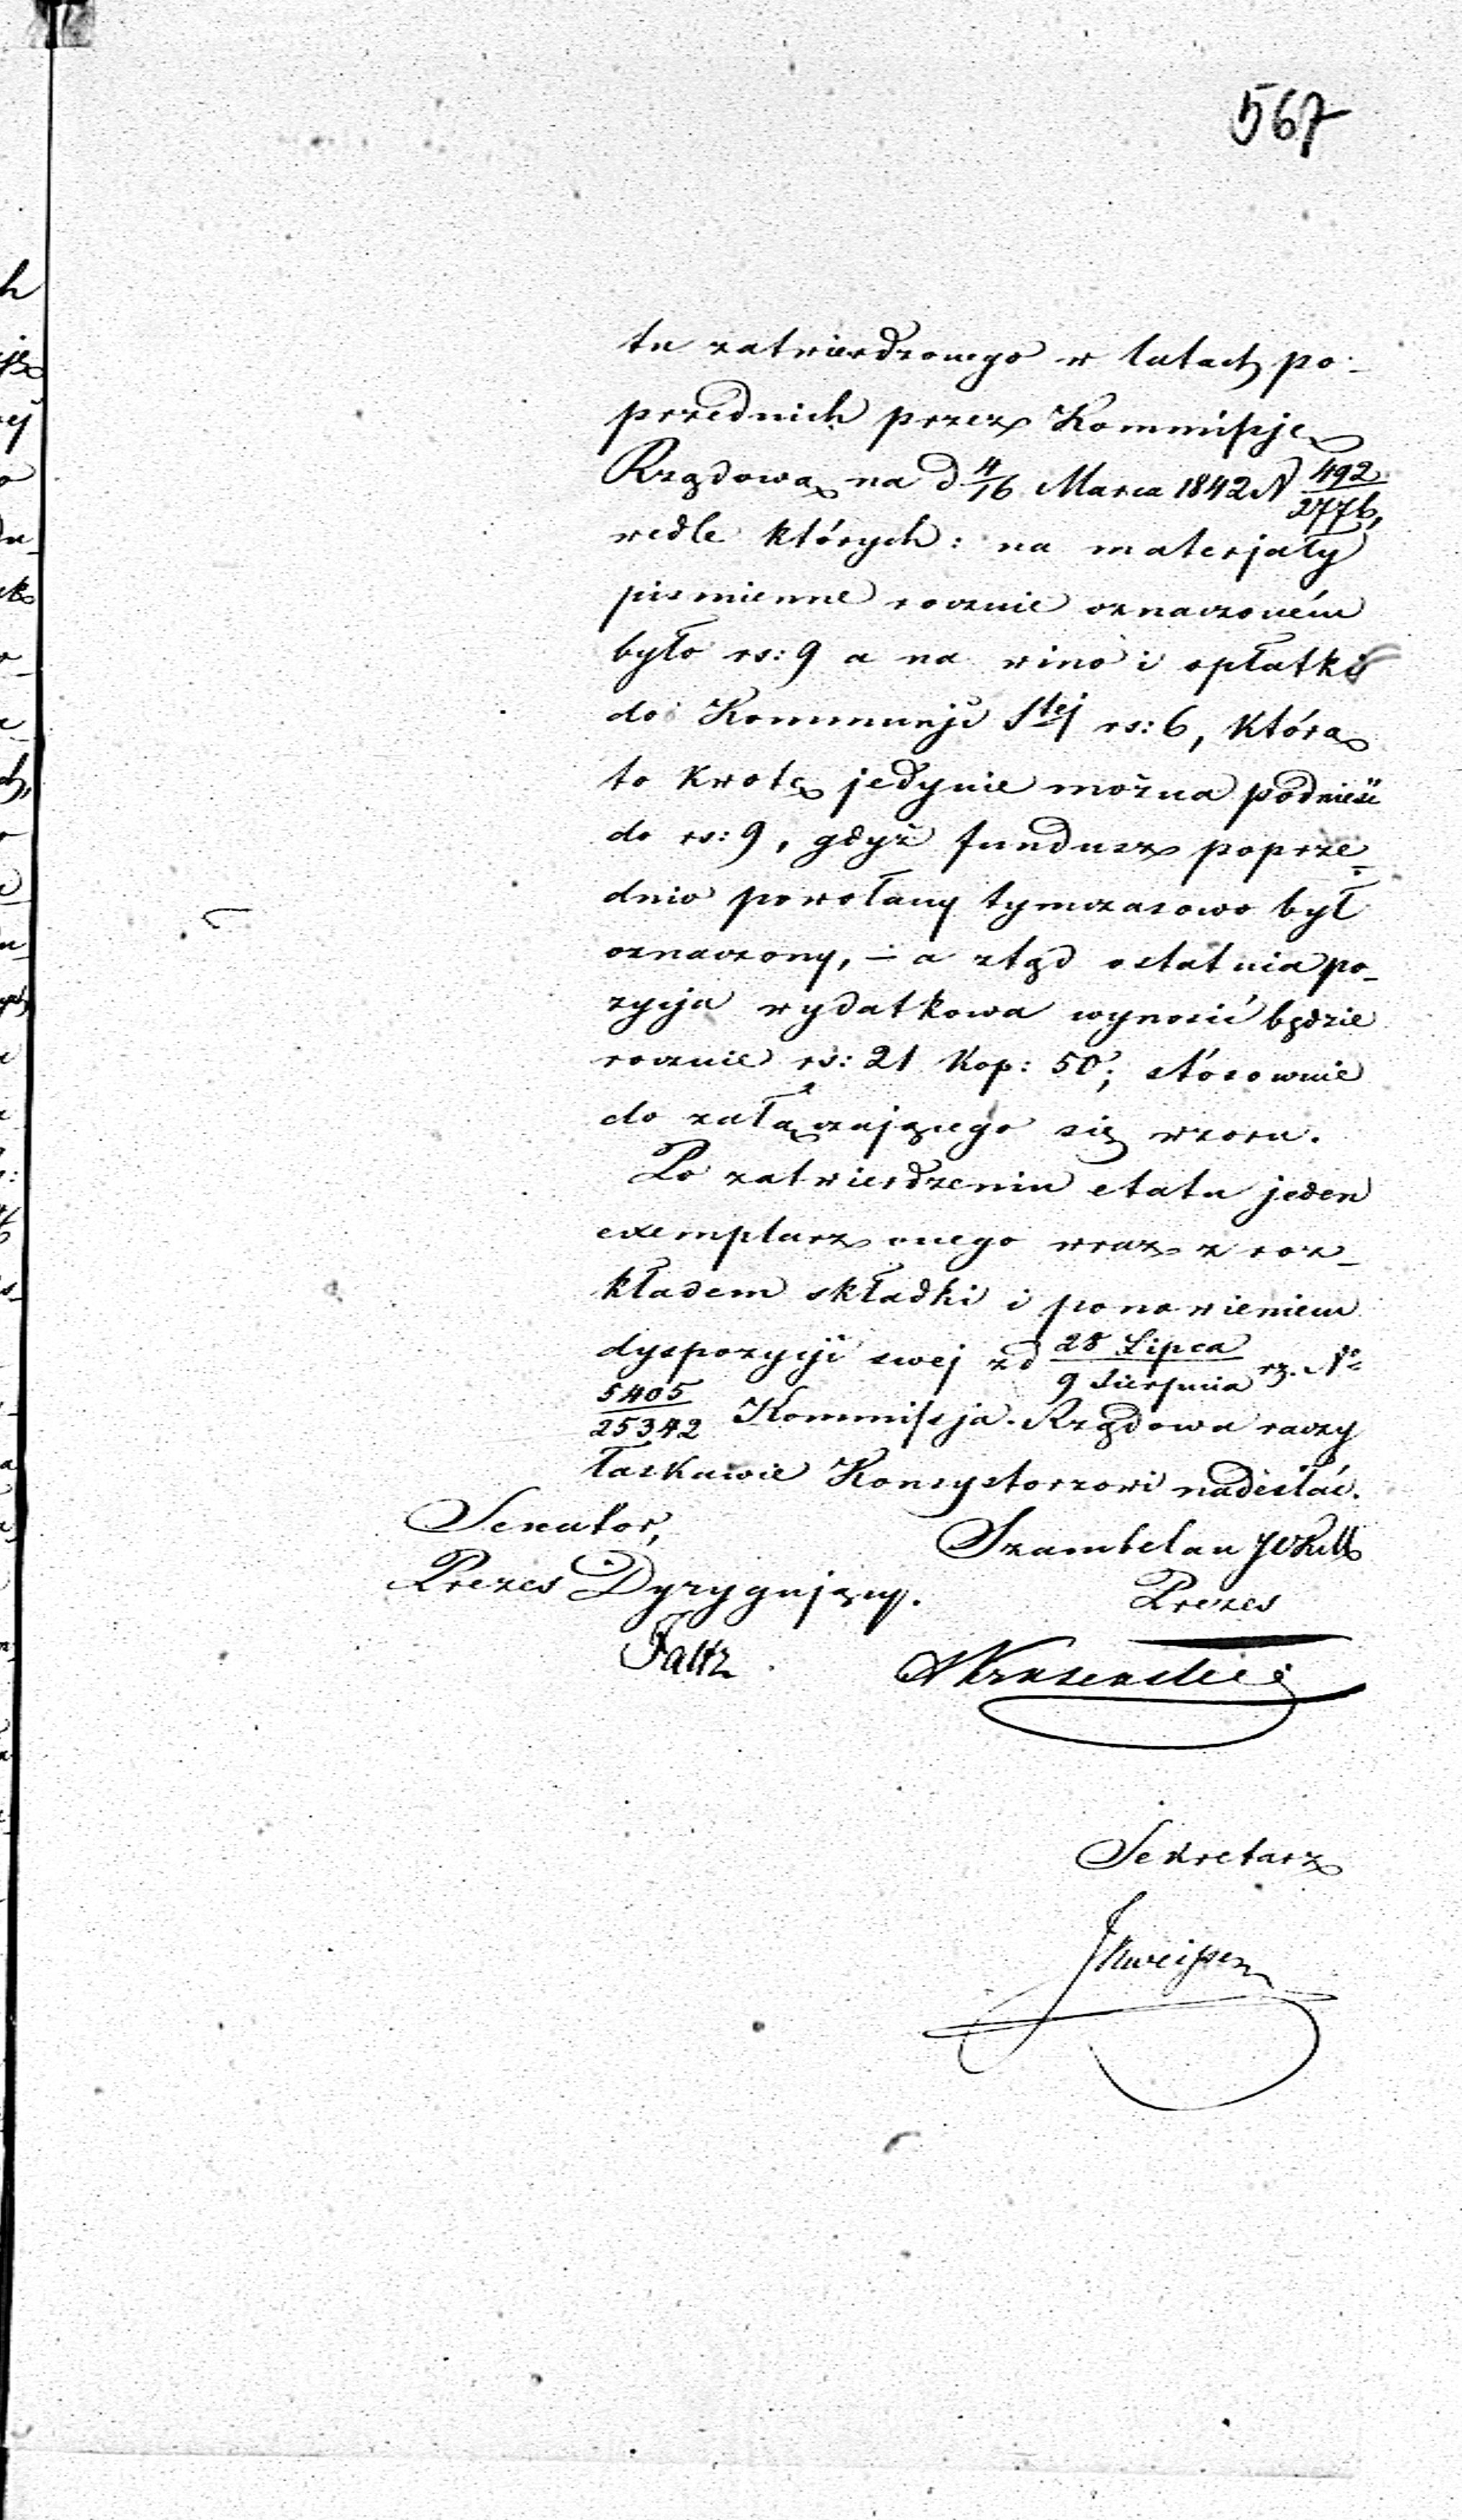 567
tu zatwierdzonego w latach po-
przednich przez Kommissję
Rządową na d 4/16 Marca 1842 N 492/2776,
wedle których: na materjały
piśmienne rocznie oznaczoném
było rs: 9 a na wino i opłatki
do Kommunji Stej rs: 6, którą
to kwotę jedynie można podnieść
do rs: 9, gdyż fundusz poprze-
dnio powołany tymczasowo był
oznaczony, – a ztąd ostatnia po-
zycja wydatkowa wynosić będzie
rocznie rs: 21 Kop: 50; stósownie
do załączającego się wzoru.
Po zatwierdzeniu etatu jeden
exemplarz onego wraz z roz-
kładem składki i ponowieniem
dyspozycji swej z d 28 Lipca/9 Sierpnia rz. No
5405/25342 Kommissja Rządowa raczy
łaskawie Konsystorzowi nadesłać.
Senator,
Prezes Dyrygujący.
Szambelan
Prezes
Sekretarz